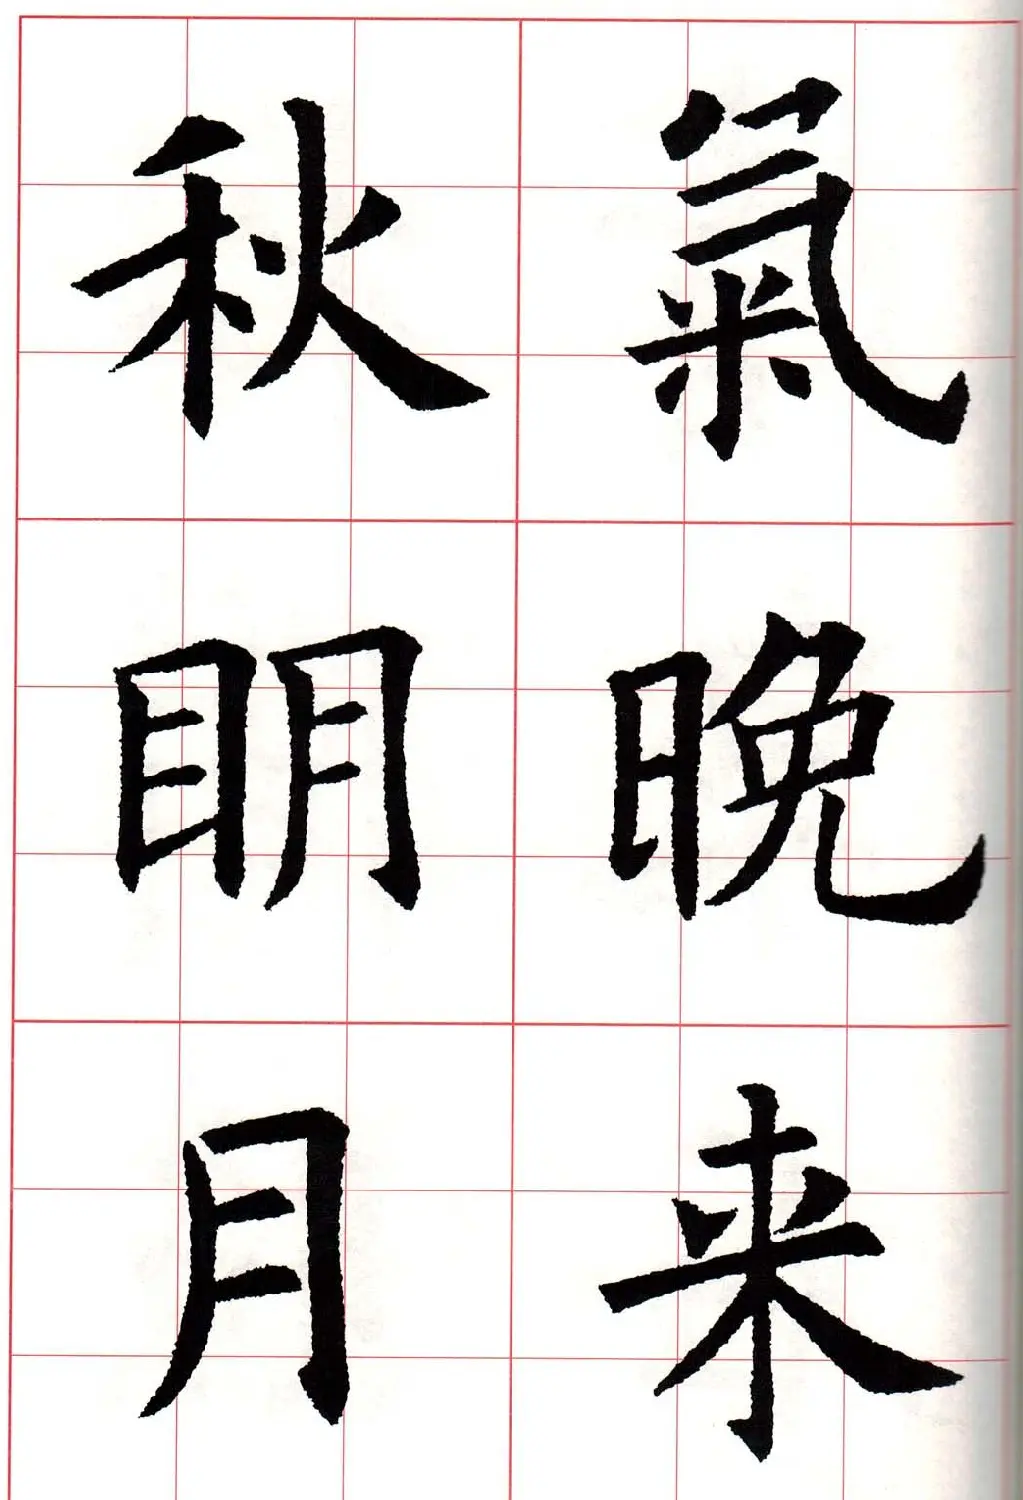 氣晚来
秋明月